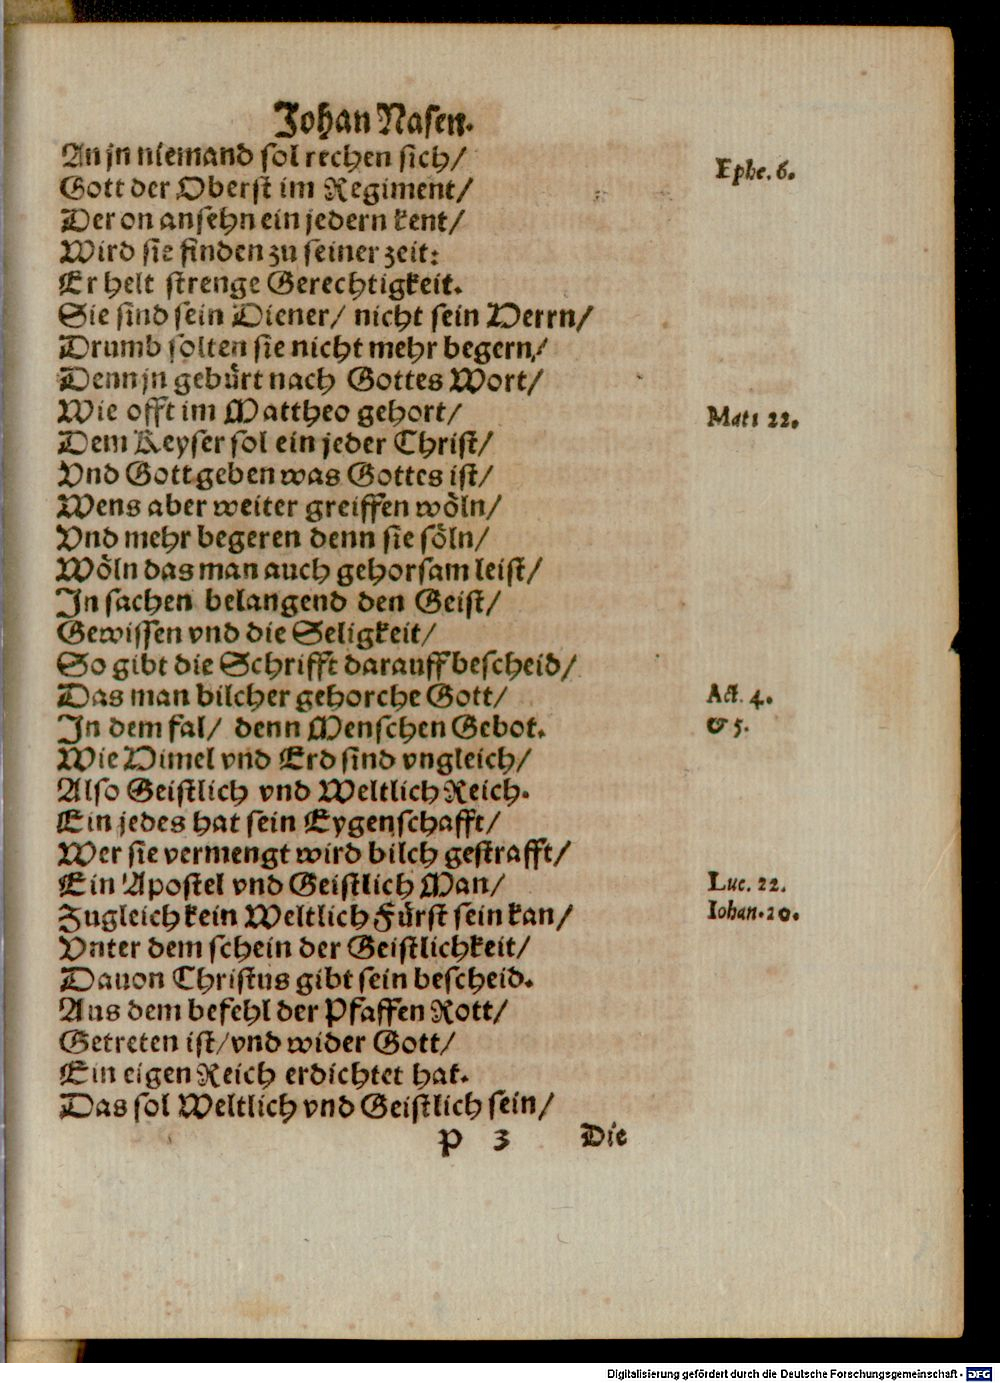 Johan Nasen.
An jn niemand sol rechen sich/
Ephe. 6.
Gott der Oberst im Regiment/
Der on ansehn ein jedern kent/
Wird sie finden zu seiner zeit:
Er helt strenge Gerechtigkeit.
Sie sind sein Diener/ nicht sein Herrn/
Drumb solten sie nicht mehr begern/
Denn jn gebürt nach Gottes Wort/
Wie offt im Mattheo gehort/
Matt 22.
Dem Keyser sol ein jeder Christ/
Vnd Gott geben was Gottes ist/
Wens aber weiter greiffen wöln/
Vnd mehr begeren denn sie söln/
Wöln das man auch gehorsam leist/
In sachen belangend den Geist/
Gewissen vnd die Seligkeit/
So gibt die Schrifft darauff bescheid/
Das man bilcher gehorche Gott/
Act. 4.
In dem fal/ denn Menschen Gebot.
& 5.
Wie Himel vnd Erd sind vngleich/
Also Geistlich vnd Weltlich Reich.
Ein jedes hat sein Eygenschafft/
Wer sie vermengt wird bilch gestrafft/
Ein Apostel vnd Geistlich Man/
Luc. 22.
Zugleich kein Weltlich Fürst sein kan/
Iohan. 20.
Vnter dem schein der Geistlichkeit/
Dauon Christus gibt sein bescheid.
Aus dem befehl der Pfaffen Rott/
Getreten ist/ vnd wider Gott/
Ein eigen Reich erdichtet hat.
Das sol Weltlich vnd Geistlich sein/
P 3 Die
Digitalisierung gefördert durch die Deutsche Forschungsgemeinschaft - DFG